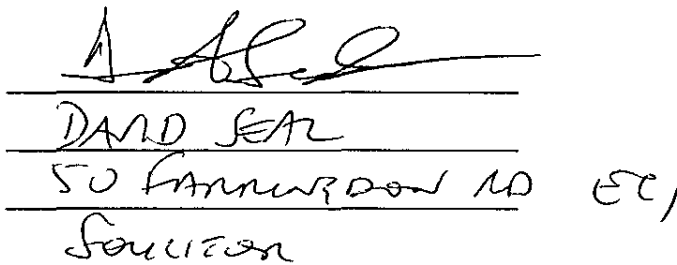 DAVID SEAL
50 FARRINGDON RD EC1
SOLICITOR